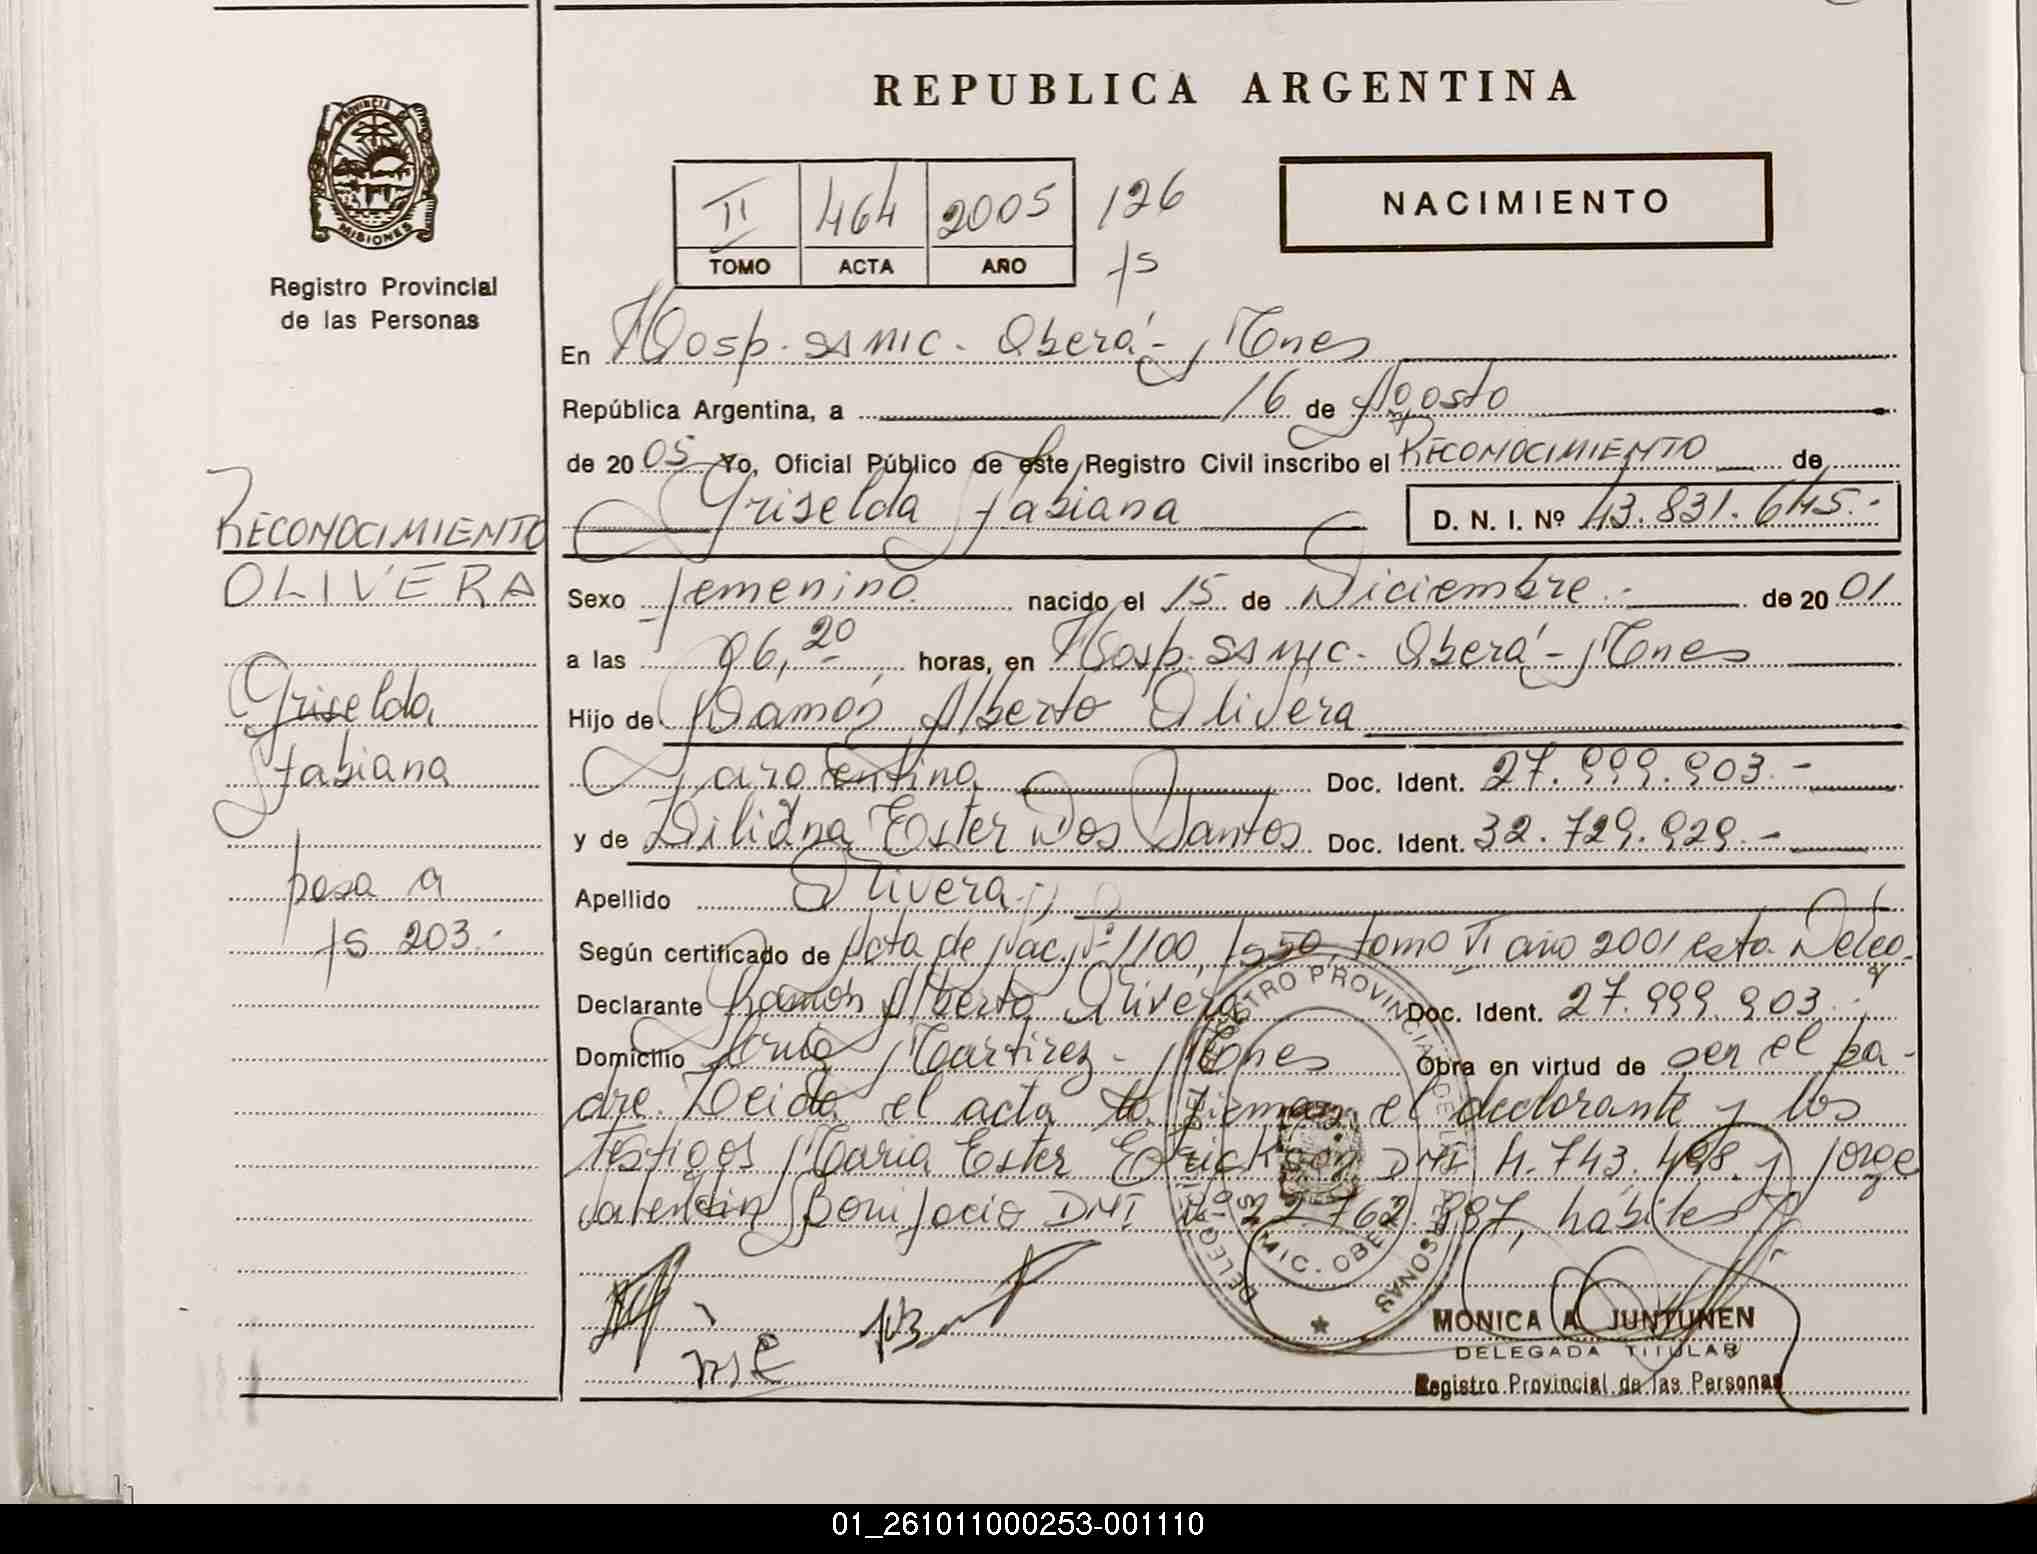 REPUBLICA ARGENTINA
PROVINCIA DE
MISIONES
Registro Provincial
de las Personas
NACIMIENTO
II 464 2005 126
TOMO ACTA AÑO fs
En Hosp. SAMIC. Oberá - Mnes
República Argentina, a 16 de Agosto
de 2005 Yo, Oficial Público de este Registro Civil inscribo el RECONOCIMIENTO de
Griselda Fabiana D. N. I. Nº 43.831.645.-
RECONOCIMIENTO
OLIVERA
Griselda
Fabiana
pasa a
fs 203.-
Sexo femenino nacido el 15 de Diciembre.- de 2001
a las 06,20 horas, en Hosp. SAMIC. Oberá - Mnes
Hijo de Ramón Alberto Olivera
argentina Doc. Ident. 27.999.903.-
y de Liliana Ester Dos Santos Doc. Ident. 32.729.929.-
Apellido Olivera.-
Según certificado de Acta de Nac. Nº 1100, fs 50, tomo VI año 2001 esta Deleg.
Declarante Ramón Alberto Olivera Doc. Ident. 27.999.903.-
Domicilio Mártires - Mnes Obra en virtud de ser el pa-
dre. Leida el acta la firman el declarante y los
testigos Maria Ester Erickson DNI 4.743.498. y Jorge
Valentin Bonifacio DNI 22.762.887, hábiles
REGISTRO PROVINCIAL DE LAS PERSONAS
DELEGACION
SAMIC. OBERA
MONICA A. JUNTUNEN
DELEGADA TITULAR
Registro Provincial de las Personas
01_261011000253-001110